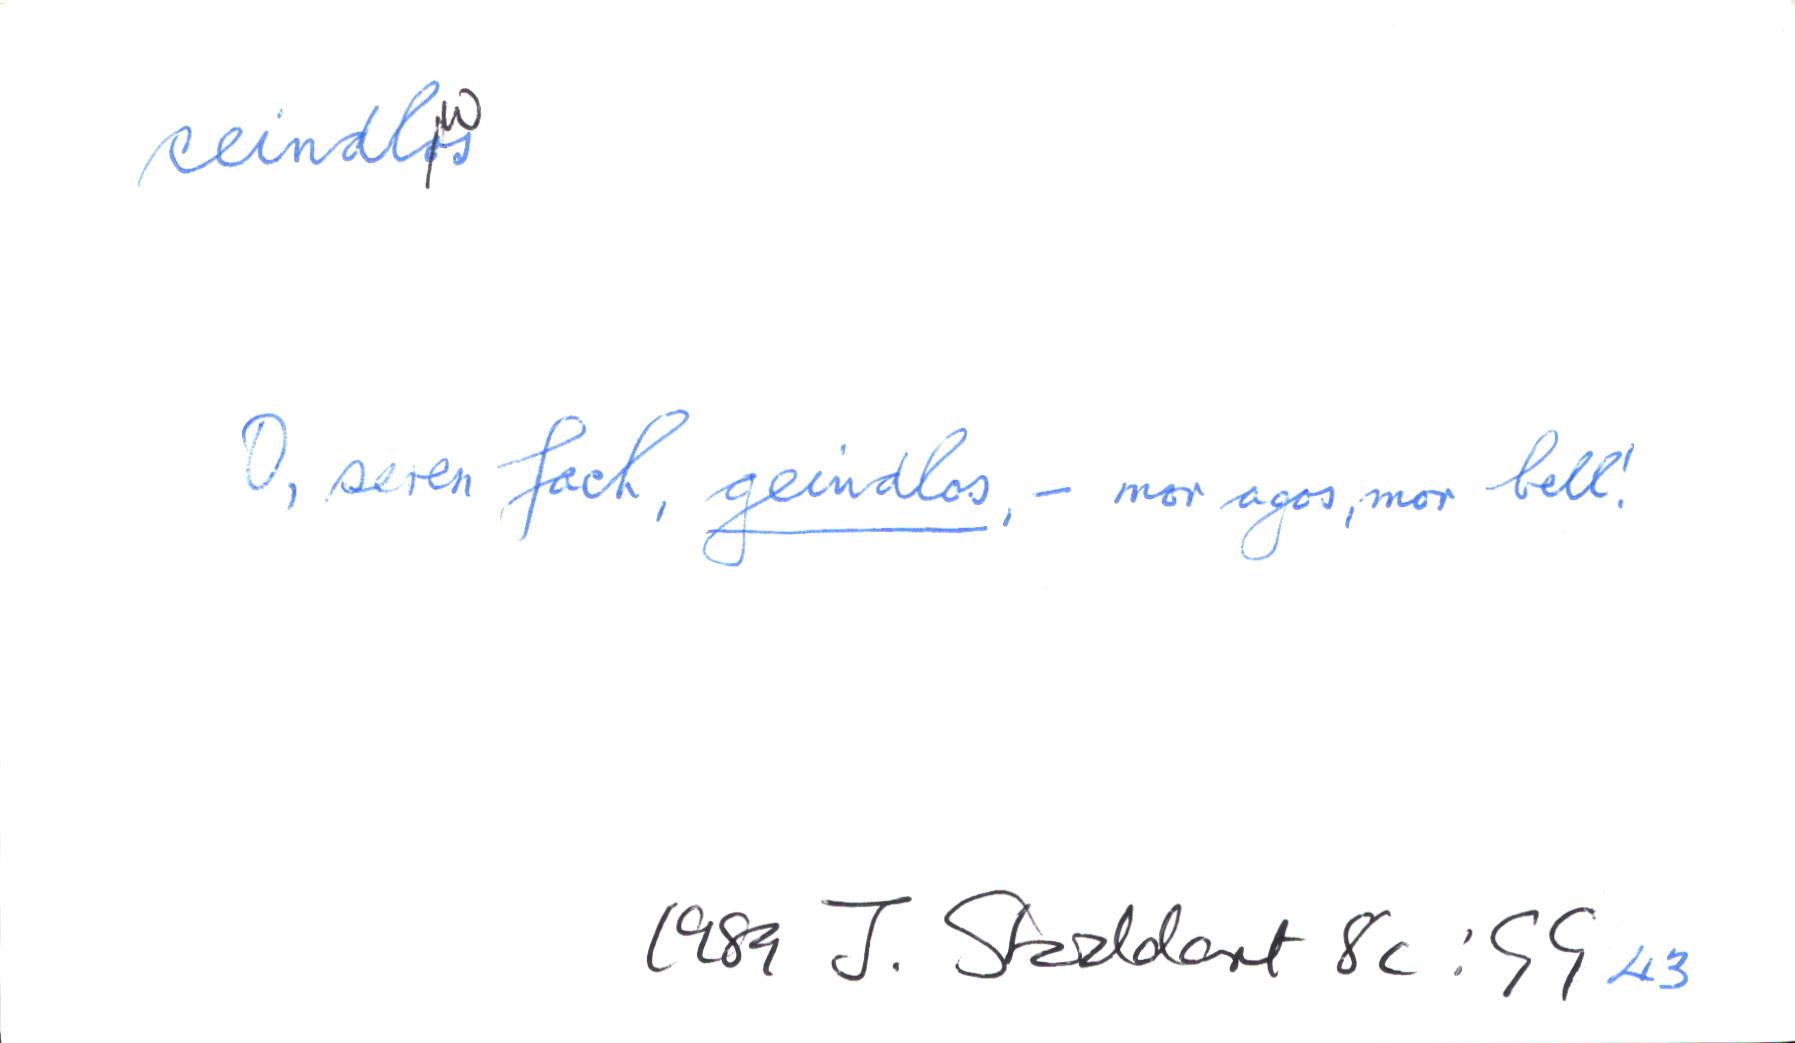 ceindlos
w
O, seren fach, geindlos, – mor agos, mor bell!
1989 J. Stoddart &c : GG 43